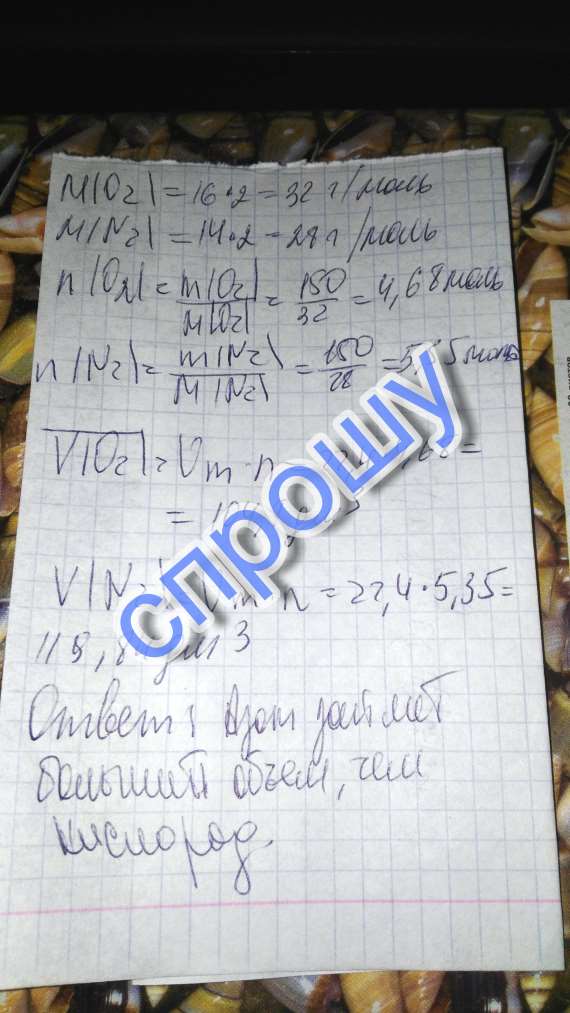 M(O2) = 16·2 = 32 г/моль
M(N2) = 14·2 = 28 г/моль
n(O2) = m(O2)/M(O2) = 150/32 = 4,68 моль
n(N2) = m(N2)/M(N2) = 150/28 = 5,35 моль
V(O2) = Vm·n =
=
спрошу
V(N2) Vm n = 22,4·5,35 =
дм3
Ответ: Азот займет
больший объем, чем
кислород.